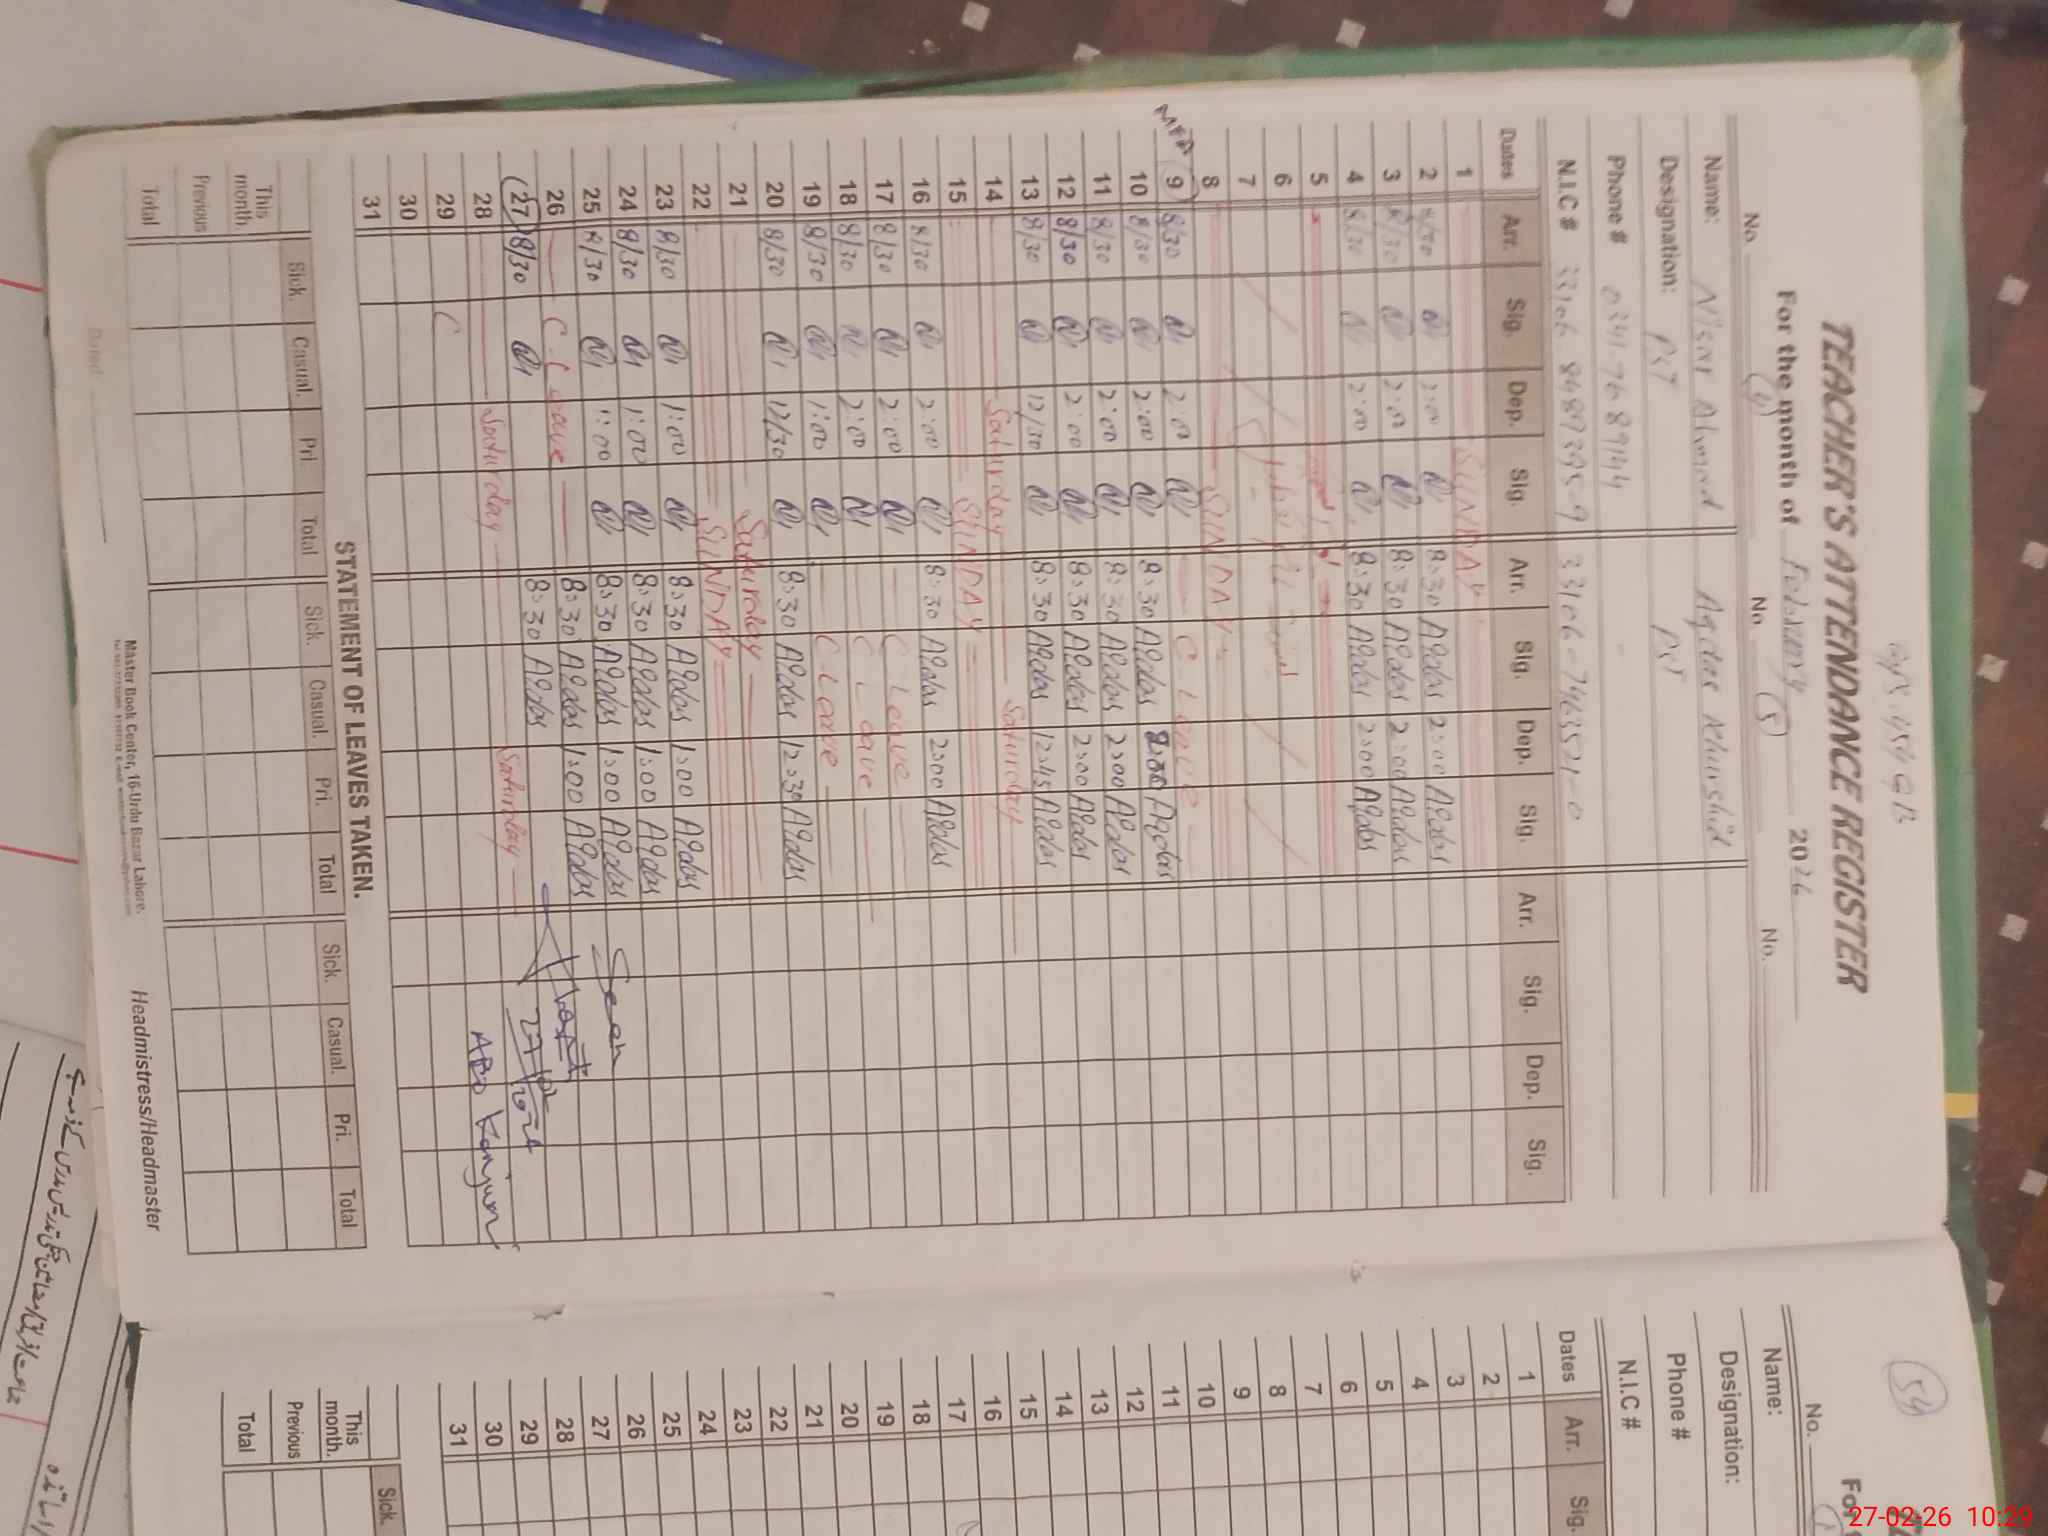 TEACHER'S ATTENDANCE REGISTER
For the month of February 2026
No. (4) No. (5) No.
Name: Nisar Ahmad Aqdas Khurshid
Designation: PST PST
Phone # 0341-7689144
N.I.C # 33106 8489395-9 33106-7463521-0
Dates Arr. Sig. Dep. Sig. Arr. Sig. Dep. Sig. Arr. Sig. Dep. Sig.
1 SUNDAY
2 2:00 8:30 Aqdas 2:00 Aqdas
3 8/30 2:00 8:30 Aqdas 2:00 Aqdas
4 8/30 2:00 8:30 Aqdas 2:00 Aqdas
5
6
7
8 SUNDAY
9 8/30 2:00 C-Leave
10 8/30 2:00 8:30 Aqdas 2:00 Aqdas
11 8/30 2:00 8:30 Aqdas 2:00 Aqdas
12 8/30 2:00 8:30 Aqdas 2:00 Aqdas
13 8/30 12/30 8:30 Aqdas 12:45 Aqdas
14 Saturday Saturday
15 SUNDAY
16 8/30 2:00 8:30 Aqdas 2:00 Aqdas
17 8/30 2:00 C Leave
18 8/30 2:00 C Leave
19 8/30 1:00 C-Leave
20 8/30 12/30 8:30 Aqdas 12:30 Aqdas
21 Saturday
22 SUNDAY
23 8/30 1:00 8:30 Aqdas 1:00 Aqdas
24 8/30 1:00 8:30 Aqdas 1:00 Aqdas
25 8/30 1:00 8:30 Aqdas 1:00 Aqdas Seen
26 C-Leave 8:30 Aqdas 1:00 Aqdas
(27) 8/30 8:30 Aqdas
28 Saturday Saturday
29 C
30
31
STATEMENT OF LEAVES TAKEN.
Sick. Casual. Pri Total Sick. Casual. Pri. Total Sick. Casual. Pri. Total
This month.
Previous
Total
Dated:
Master Book Center, 16-Urdu Bazar Lahore.
Headmistress/Headmaster
54
For
No.
Name:
Designation:
Phone #
N.I.C #
Dates Arr. Sig.
1
2
3
4
5
6
7
8
9
10
11
12
13
14
15
16
17
18
19
20
21
22
23
24
25
26
27
28
29
30
31
Sick.
This month.
Previous
Total
27-02-26 10:29